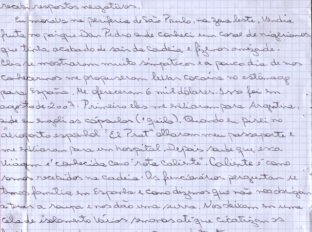 respostas negativas.
Eu morava na periferia de São Paulo, na zona leste. Vendia
fruta no parque Dom Pedro onde conheci um casal de nigerianos
que tinha acabado de sair da cadeia e fiz amizade.
Eles se mostraram muito simpáticos e a pouco dia de nos
conhecermos me propuseram levar cocaína no estômago
para España. Me ofereceram 6 mil dólares. Isso foi em
agosto de 2007. Primeiro eles me enviaram para Argentina,
onde eu engoli as cápsulas (1 quilo). Quando eu parei no
aeroporto español "El Prat" olharam meu passaporte e
me enviaram para um hospital. Depois soube que essa
viagem é conhecida como "rota caliente". Caliente é como
somos recebidos na cadeia. Os funcionários perguntam se
temos família em Espanha e como dizemos que não nos obrigam
a tirar a roupa e nos dão uma surra. Nos deixam em uma
cela de isolamento várias semanas até que cicatrizem as